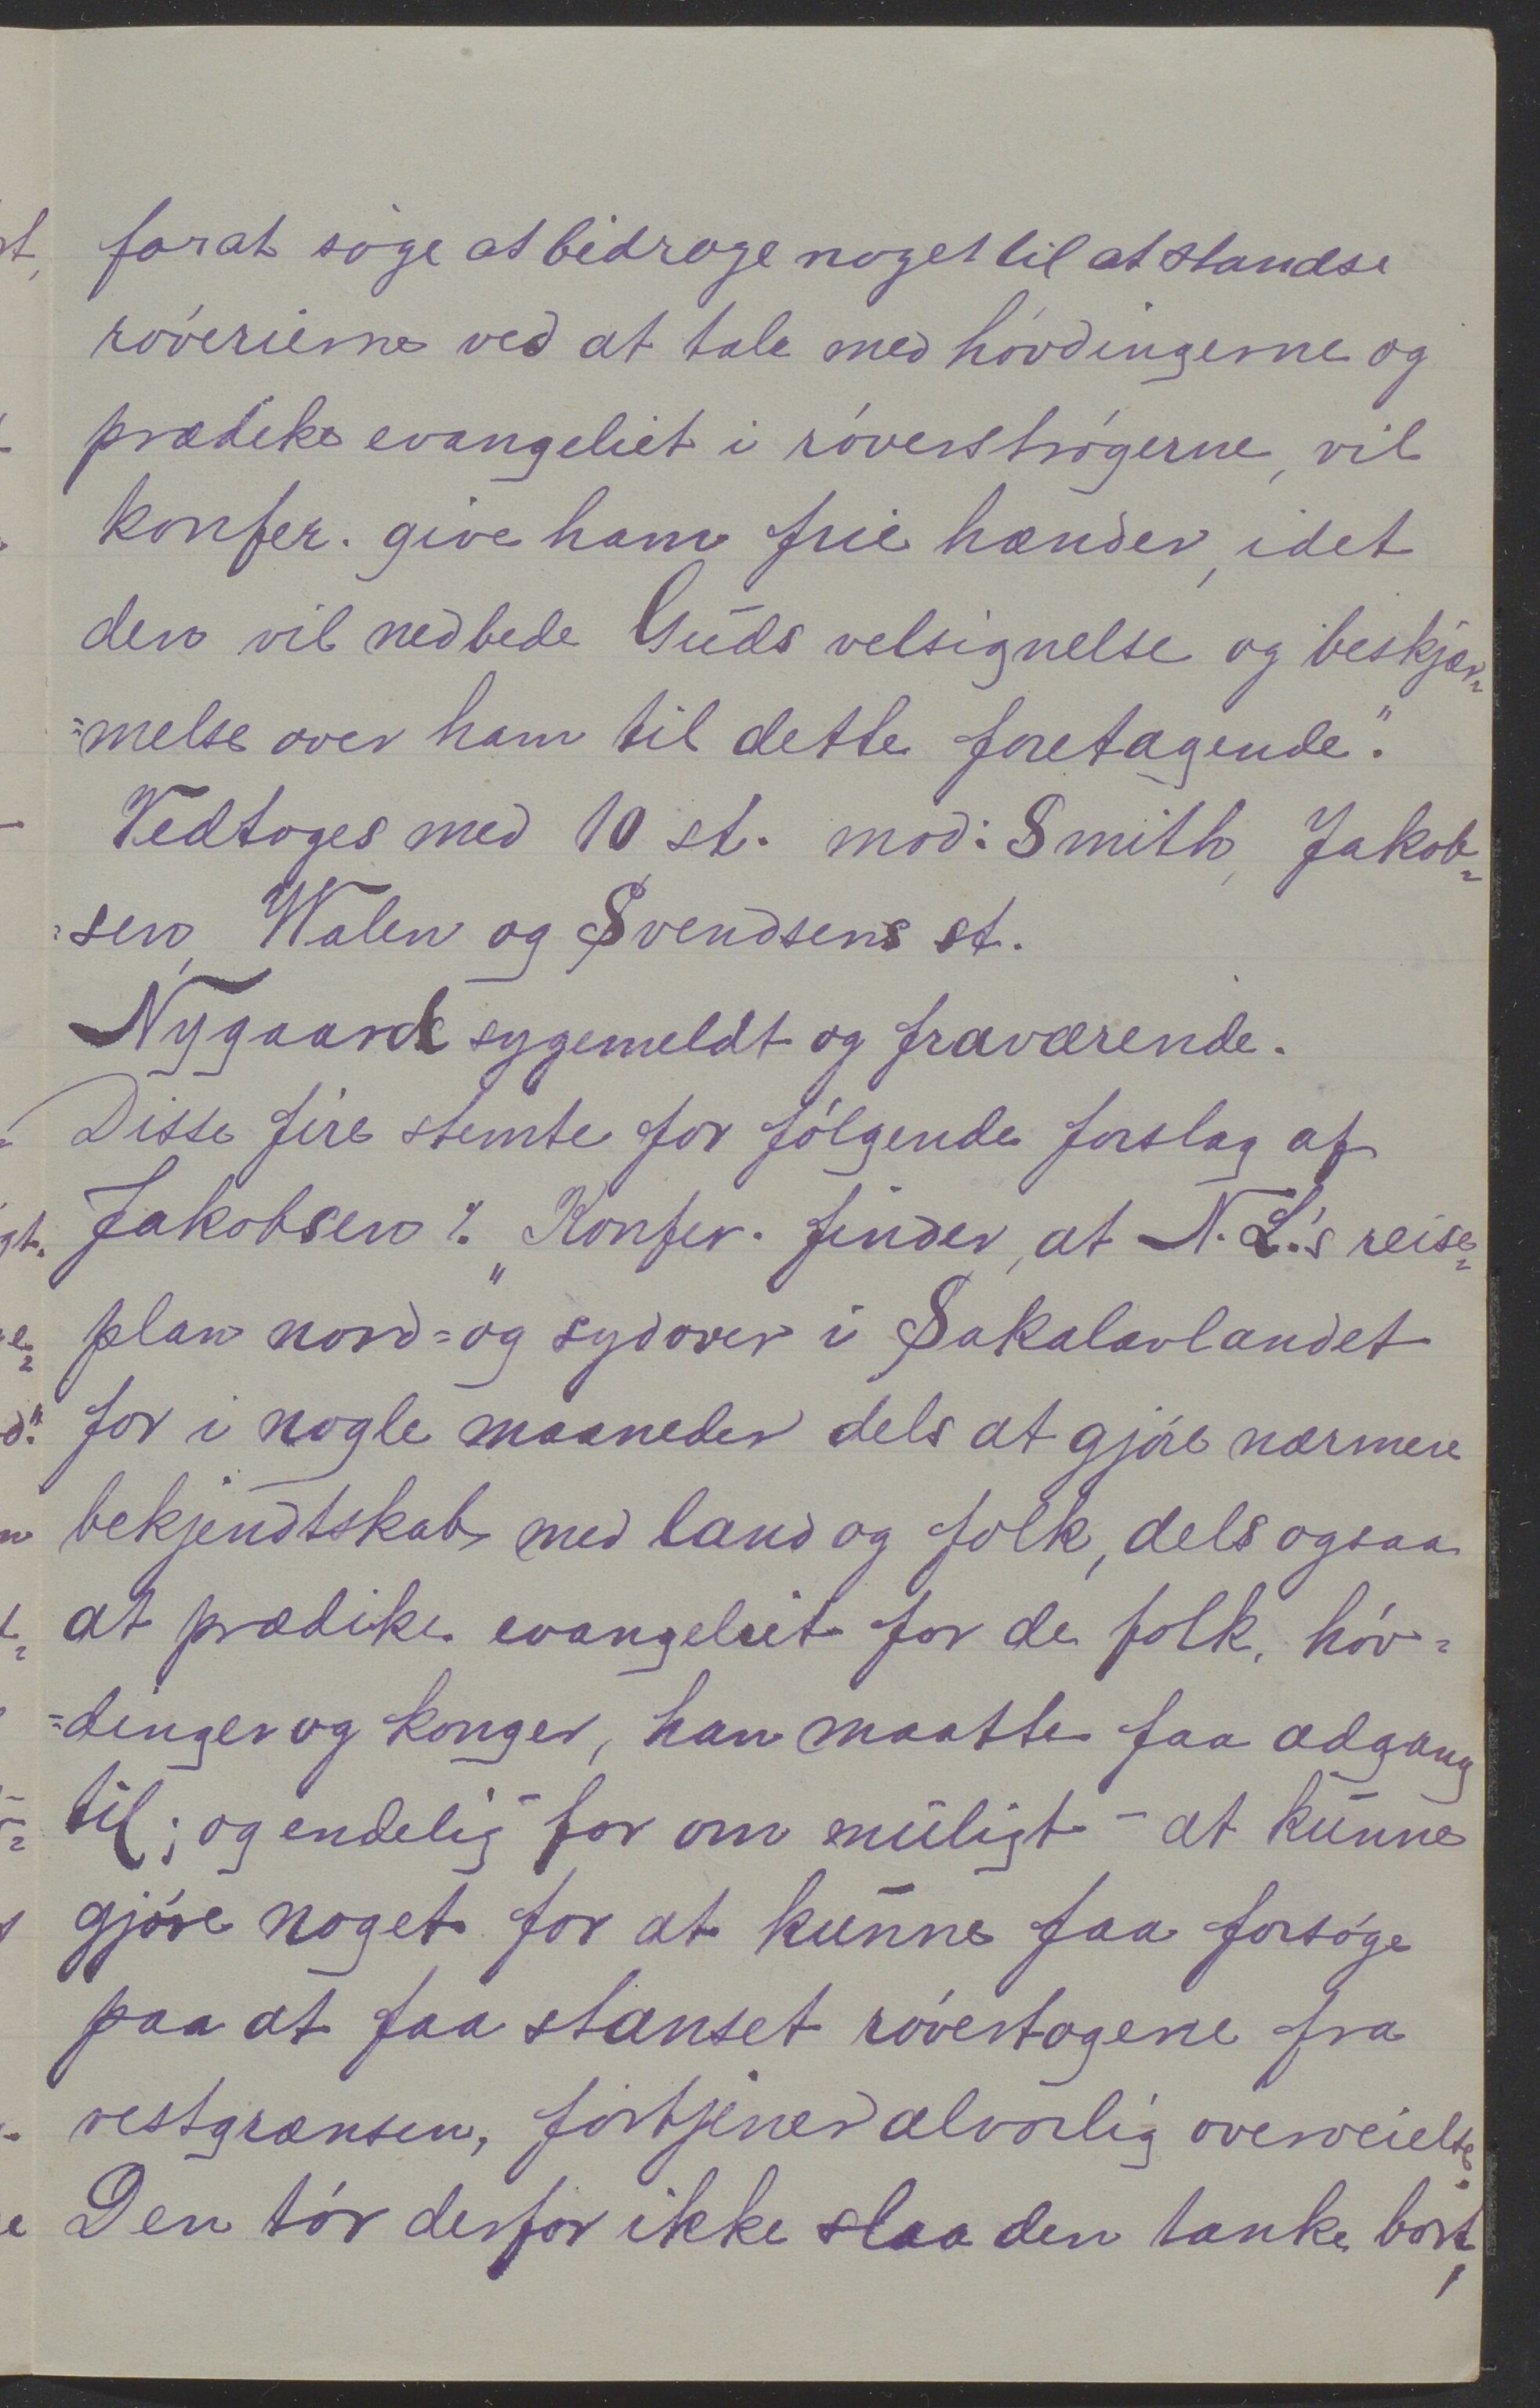 forat søge at bidrage noget til at standse
røverierne ved at tale med høvdingerne og
prædike evangeliet i røverstrøgerne, vil
konfer. give ham frie hænder, idet
den vil nedbede Guds velsignelse og beskjær-
=melse over ham til dette foretagende".
Vedtoges med 10 st. mod: Smith, Jakob-
=sen, Walen og Svendsens st.
Nygaard sygemeldt og fraværende.
Disse fire stemte for følgende forslag af
Jakobsen :/: "Konfer. finder, at N. L.'s reise-
plan nord= og sydover i Sakalavlandet
for i nogle maaneder dels at gjøre nærmere
bekjendtskab med land og folk, dels ogsaa
at prædike evangeliet for de folk, høv=
=dinger og konger, han maatte faa adgang
til; og endelig for om muligt - at kunne
gjøre noget for at kunne faa forsøge
paa at faa stanset røvertogene fra
vestgrænsen, fortjener alvorlig overveielse.
Den tør derfor ikke slaa den tanke bort,